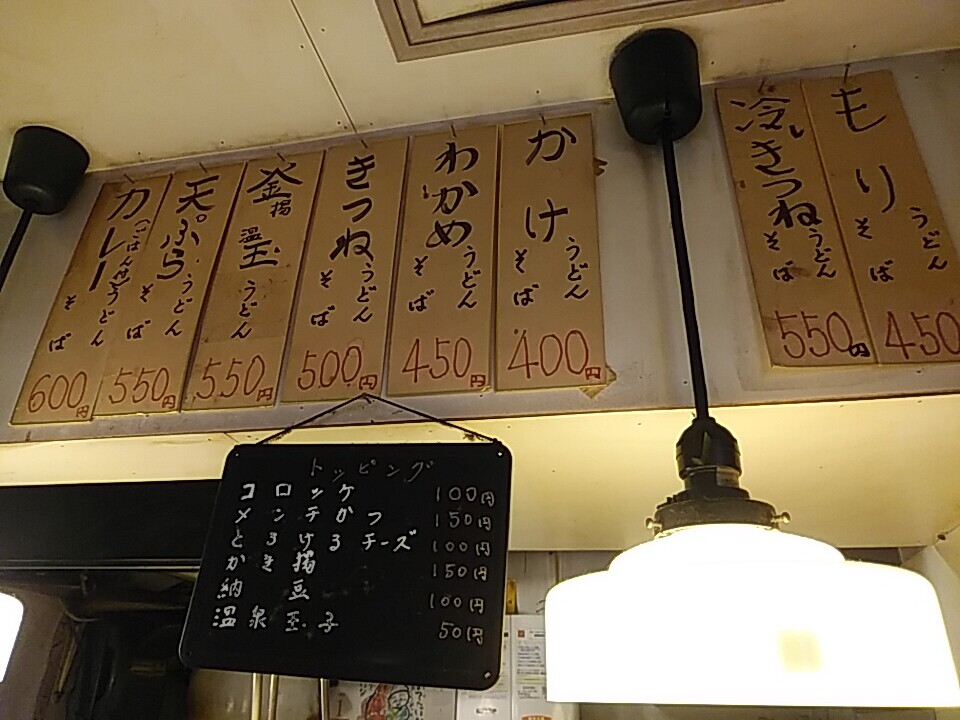 もり
うどん
そば
450
冷しきつね
うどん
そば
550円
かけ
うどん
そば
400円
わかめ
うどん
そば
450円
きつね
うどん
そば
500円
釜揚
温玉
うどん
550円
天ぷら
うどん
そば
550円
カレー
(ごはん付)
うどん
そば
600円
トッピング
コロッケ 100円
メンチかつ 150円
とろけるチーズ 100円
かき揚 150円
納豆 100円
温泉玉子 50円